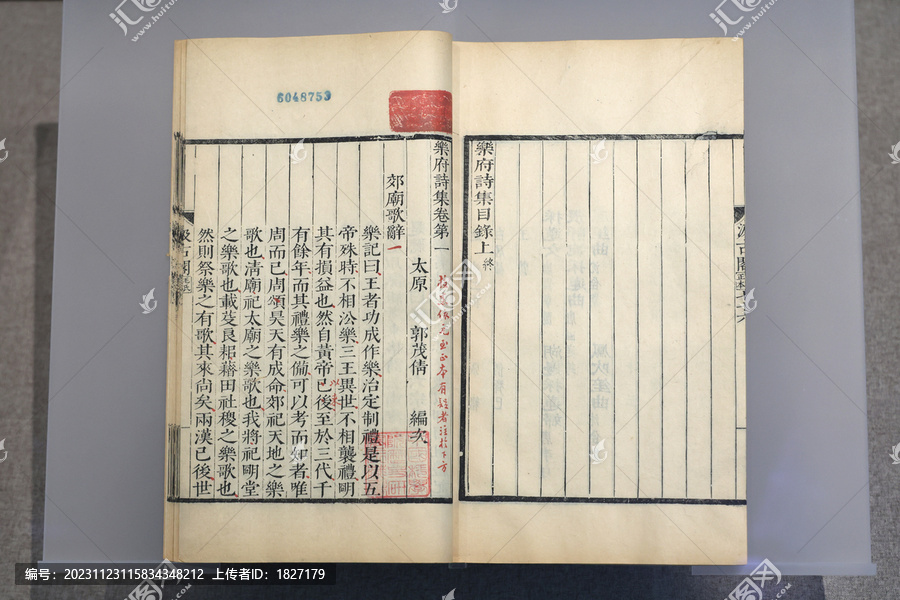 樂府詩集目錄上終
汲古閣
6048753
樂府詩集卷第一
太原 郭茂倩 編次
郊廟歌辭一
樂記曰王者功成作樂治定制禮是以五
帝殊時不相沿樂三王異世不相襲禮明
其有損益也然自黃帝已後至於三代千
有餘年而其禮樂之備可以考而知者唯
周而已周頌昊天有成命郊祀天地之樂
歌也清廟祀太廟之樂歌也我將祀明堂
之樂歌也載芟良耜藉田社稷之樂歌也
然則祭樂之有歌其來尚矣兩漢已後世
汲古閣
编号:20231123115834348212 上传者ID:1827179
汇图网
www.huitu.com